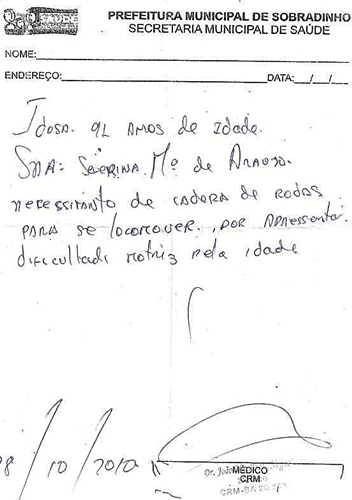 SAÚDE
PREFEITURA MUNICIPAL DE SOBRADINHO
SECRETARIA MUNICIPAL DE SAÚDE
NOME:
ENDEREÇO: DATA: / /
Idosa. 92 Amos de Idade.
SRA: Severina Mª de Araujo.
necessitanto de cadera de rodas
para se locomover, por apresenta
dificultadi motriz pela idade
/10/2010
Dr.
MÉDICO
CRM
CRM-BA